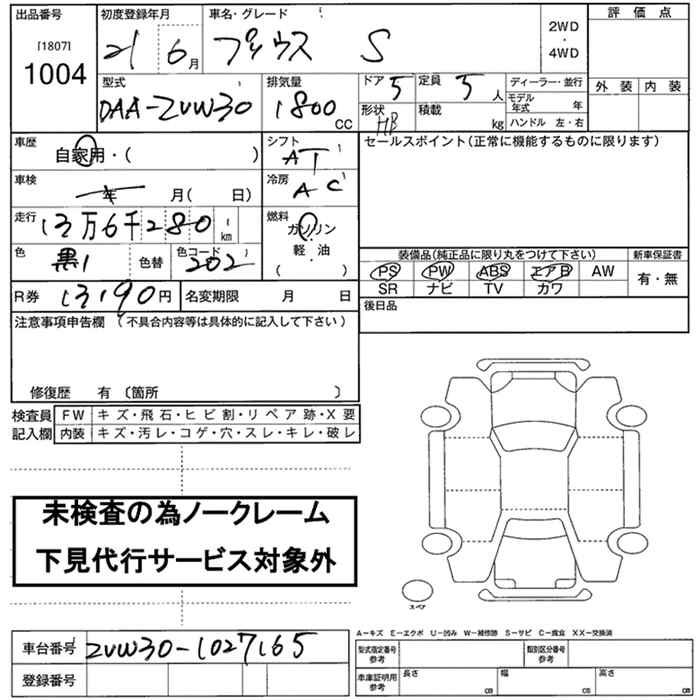 出品番号 初度登録年月 車名・グレード 評価点
[1807] 1004 21 6月 プリウス S 2WD・4WD
型式 排気量 ドア 5 定員 5人 ディーラー・並行 外装 内装
DAA-ZVW30 1800cc 形状 HB 積載 kg モデル年式 年
ハンドル 左・右
車歴 自家用・( ) シフト AT セールスポイント(正常に機能するものに限ります)
車検 年 月( 日) 冷房 AC
走行 13万6千280km 燃料 ガソリン・軽・油 ( )
色 黒1 色替 色コード 202
装備品(純正品に限り丸をつけて下さい) 新車保証書
PS PW ABS エアB AW 有・無
SR ナビ TV カワ
R券 13190円 名変期限 月 日 後日品
注意事項申告欄 (不具合内容等は具体的に記入して下さい)
修復歴 有 〔箇所 〕
検査員 FW キズ・飛石・ヒビ割・リペア跡・X要
記入欄 内装 キズ・汚レ・コゲ・穴・スレ・キレ・破レ
未検査の為ノークレーム
下見代行サービス対象外
A−キズ E−エクボ U−凹み W−補修跡 S−サビ C−腐食 XX−交換済
車台番号 ZVW30-1027165 型式指定番号 参考 類別区分番号 参考
登録番号 車庫証明用 参考 長さ cm 幅 cm 高さ cm